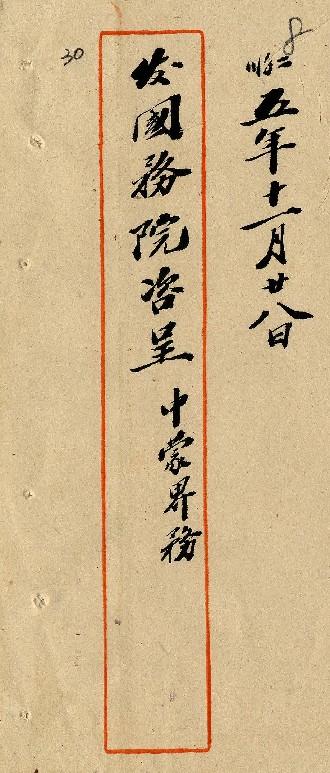 8
五年十一月廿八日
发國務院咨呈 中蒙界務
30